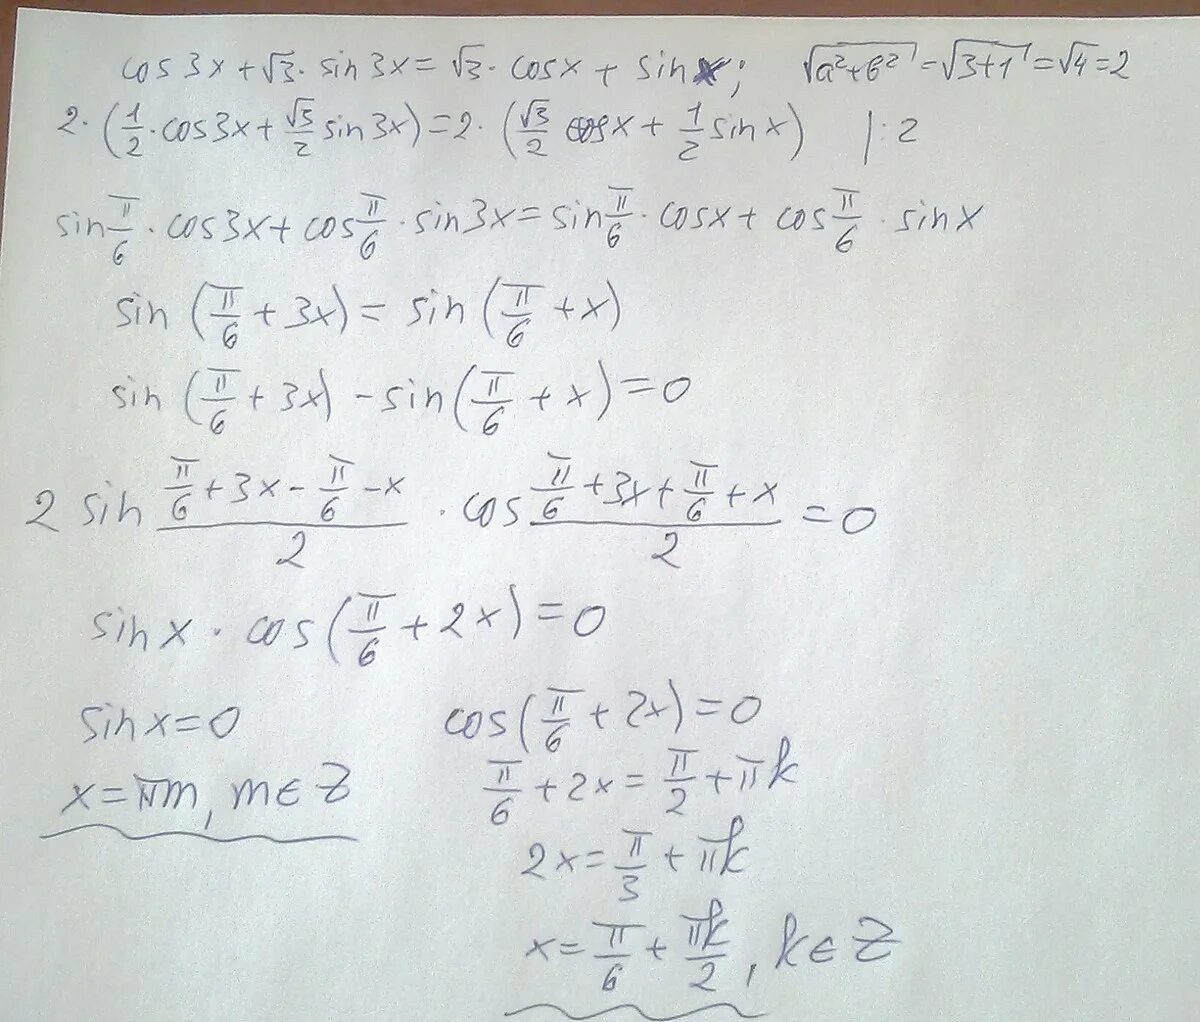 cos3x+√3· sin3x=√3· cosx + sinx; √a²+b²=√3+1=√4=2
2·(1/2·cos3x+√3/2 sin3x)=2·(√3/2 cosx+1/2 sinx) |:2
sin π/6 · cos3x+cos π/6 · sin3x=sin π/6 · cosx+cos π/6 · sinx
sin(π/6+3x)=sin(π/6+x)
sin(π/6+3x)-sin(π/6+x)=0
2 sin (π/6+3x-π/6-x)/2 · cos (π/6+3x+π/6+x)/2=0
sinx · cos(π/6+2x)=0
sinx=0 cos(π/6+2x)=0
x=πm, m∈Z π/6+2x=π/2+πk
2x=π/3+πk
x=π/6+πk/2, k∈Z